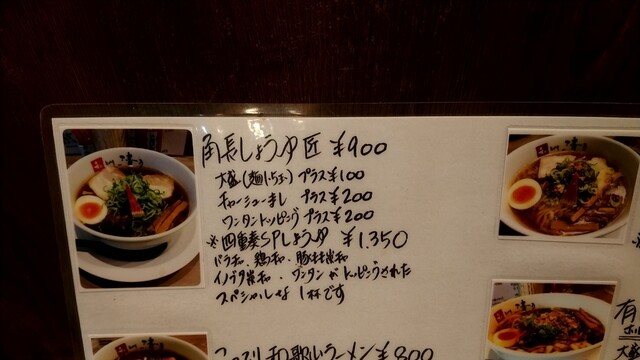 角長しょうゆ匠 ¥900
大盛(麺1.5玉) プラス¥100
チャーシューまし プラス¥200
ワンタントッピング プラス¥200
※四重奏SPしょうゆ ¥1.350
バラ和、鶏和、豚
イノブタ 和、ワンタンがトッピングされた
スペシャルな1杯です
和歌山ラーメン ¥800
有
大